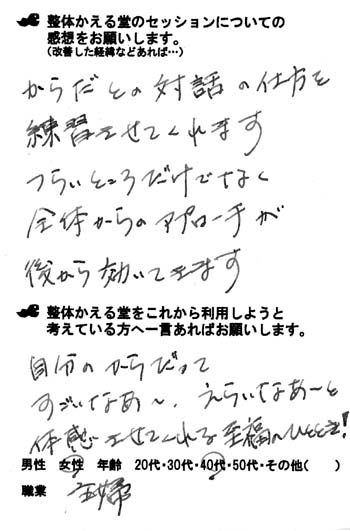 整体かえる堂のセッションについての
感想をお願いします。
（改善した経緯などあれば…）
からだとの対話の仕方を
練習させてくれます
つらいところだけでなく
全体からのアプローチが
後から効いてきます
整体かえる堂をこれから利用しようと
考えている方へ一言あればお願いします。
自分のからだって
すごいなあ〜、えらいなあ〜と
体感させてくれる至福のひととき!
男性 女性 年齢 20代・30代・40代・50代・その他（ ）
職業 主婦